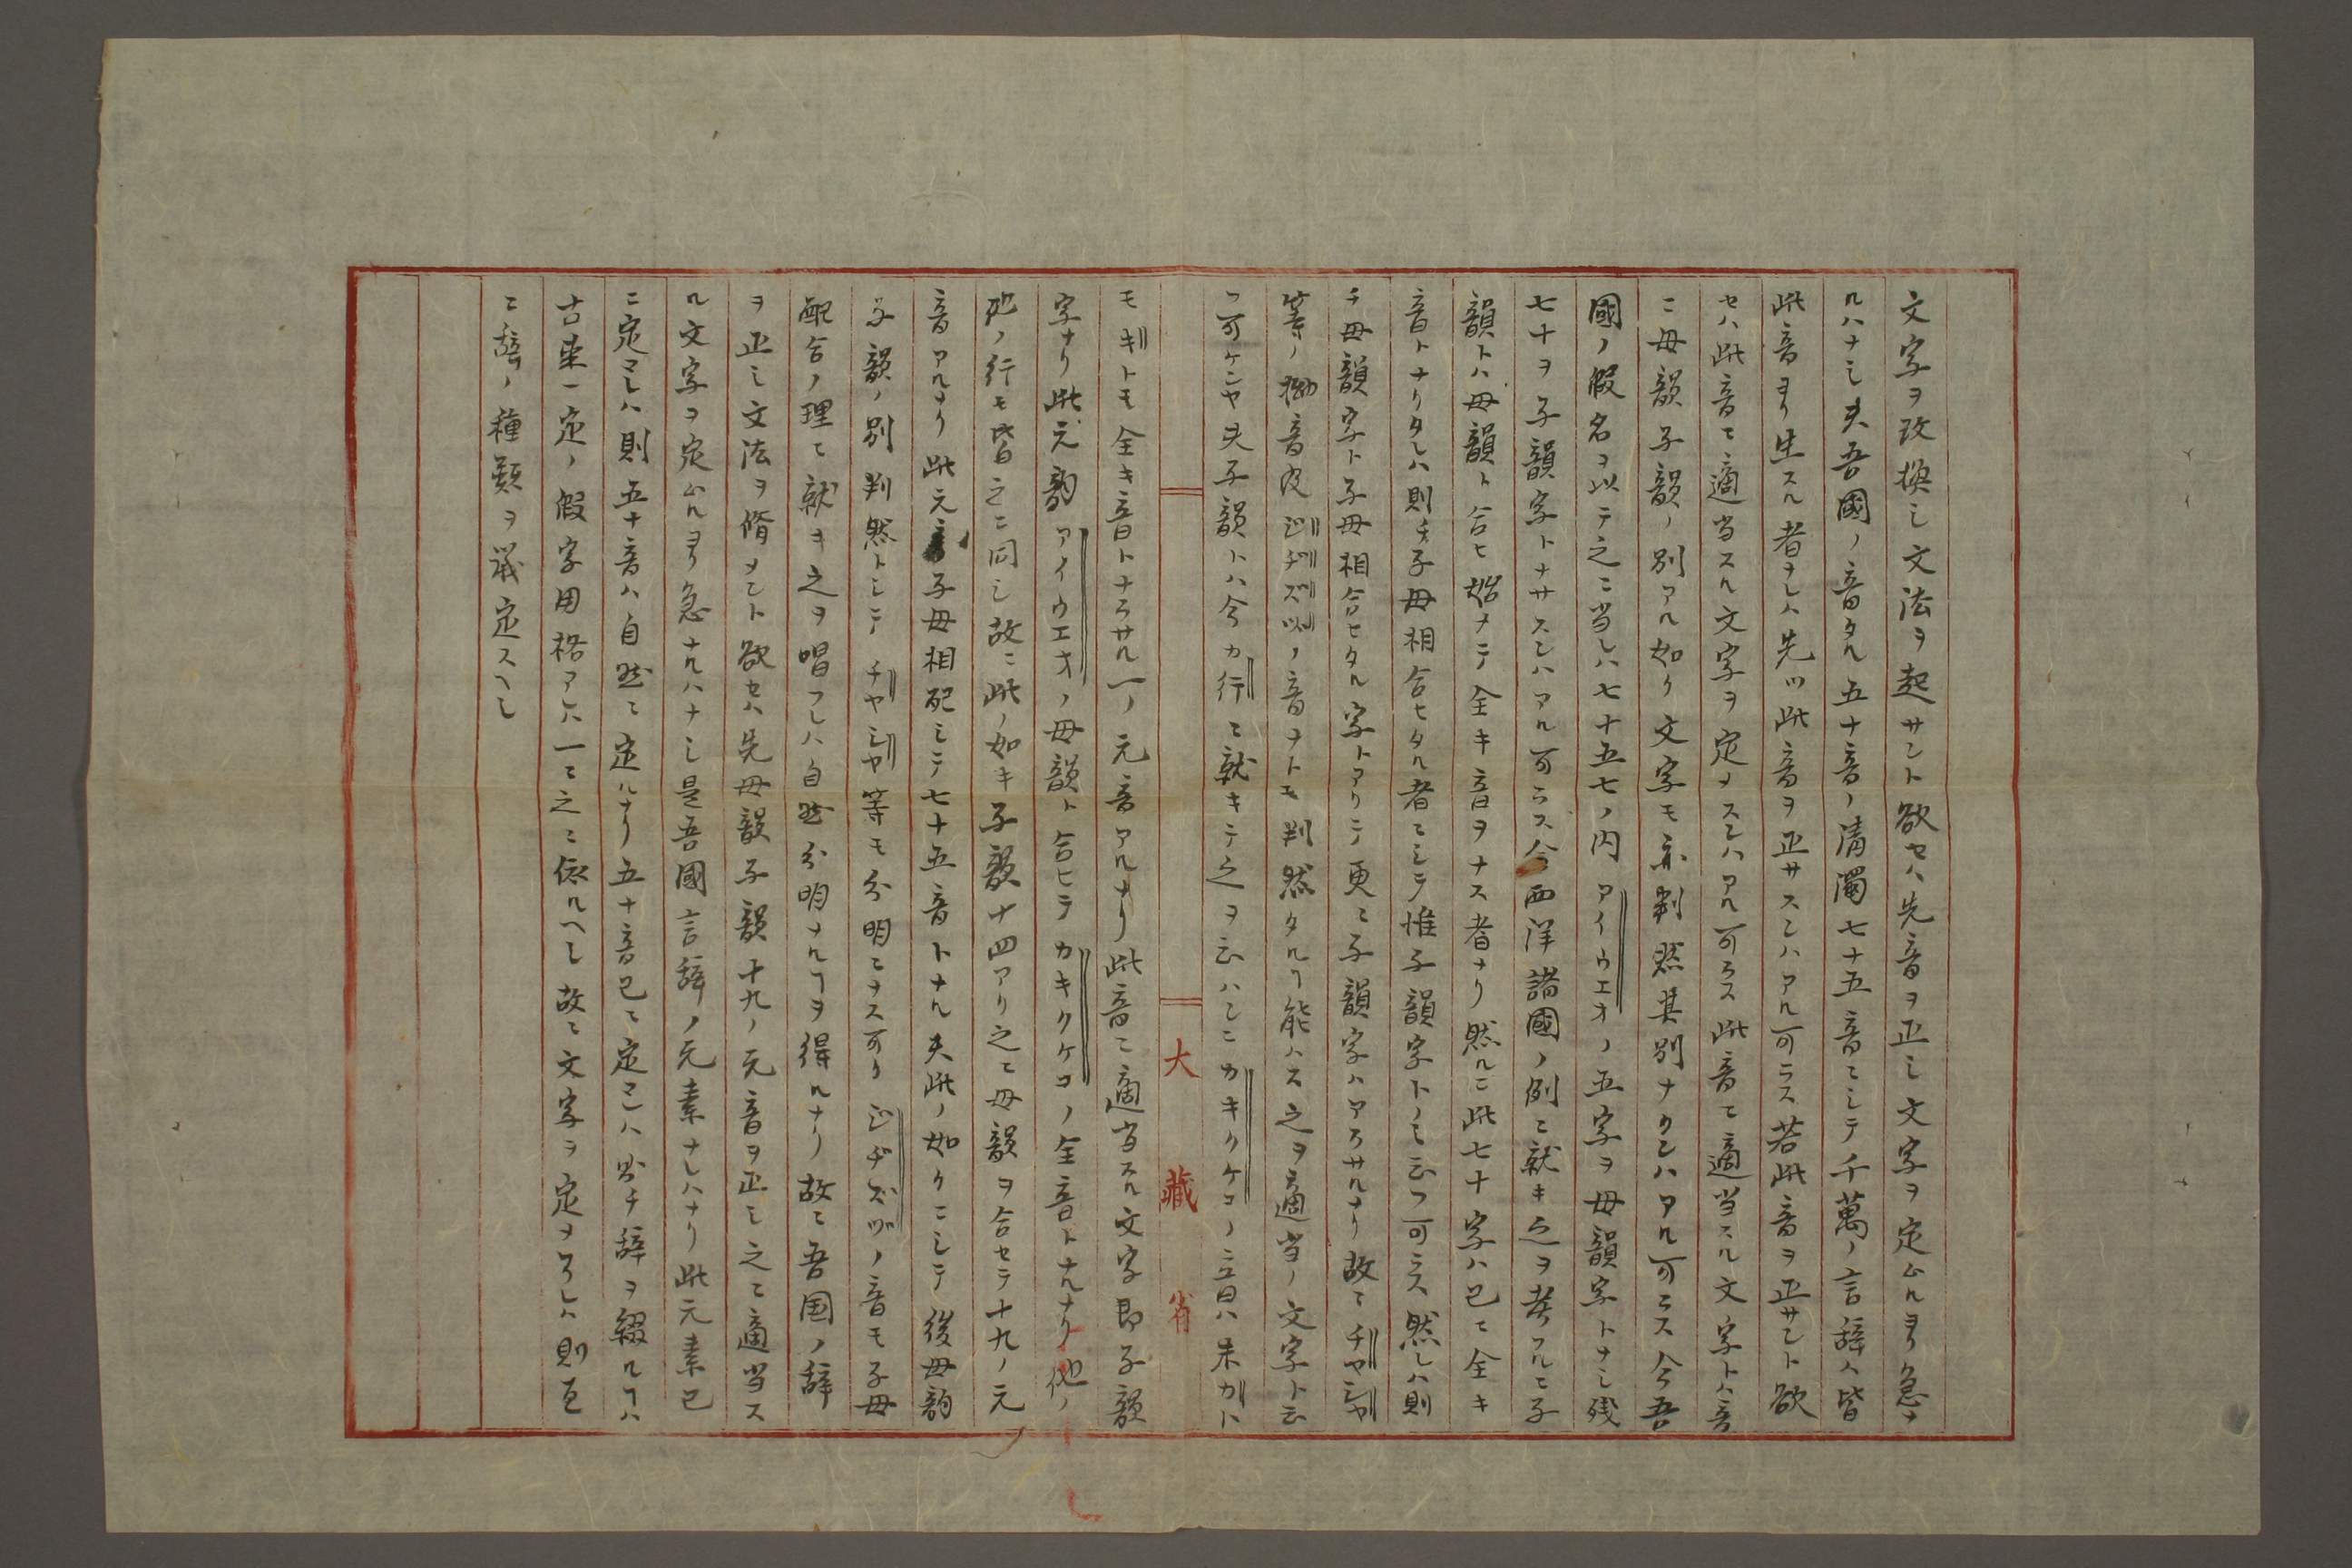 文字ヲ改換シ文法ヲ起サント欲セハ先音ヲ正シ文字ヲ定ムルヨリ急ナ
ルハナシ夫吾國ノ音タル五十音ノ清濁七十五音ニシテ千萬ノ言辞ハ皆
此音ヨリ生スル者ナレハ先ツ此音ヲ正サスンハアル可ラス若此音ヲ正サント欲
セハ此音ニ適当スル文字ヲ定メスンハアル可ラス此音ニ適当スル文字トハ音
ニ母韻子韻ノ別アル如ク文字モ亦判然其別ナクンハアル可ラス今吾
國ノ假名ヲ以テ之ニ当レハ七十五七ノ内アイウエオノ五字ヲ母韻字トナシ残
七十ヲ子韻字トナサスンハアル可ラス今西洋諸國ノ例ニ就キ之ヲ考フルニ子
韻トハ母韻ト合ヒ始メテ全キ音ヲナス者ナリ然ルニ此七十字ハ已ニ全キ
音トナリタレハ則チ子母相合セタル者ニシテ惟子韻字トノミ云フ可ラス然レハ則
チ母韻字ト子母相合セタル字トアリテ更ニ子韻字ハアラサルナリ故ニヂヤジヤ
等ノ拗音及ジヂズヅノ音ナトモ判然タルヿ能ハス之ヲ適当ノ文字ト云
フ可ケンヤ夫子韻トハ今カ行ニ就キテ之ヲ云ハンニカキクケコノ音ハ未カト
モキトモ全キ音トナラサル一ノ元音アルナリ此音ニ適当スル文字即子韻
字ナリ此元韵アイウエオノ母韻ト合ヒテカキクケコノ全音トナルナリ他ノ
行モ皆之ニ同シ故ニ此ノ如キ子韻十四アリ之ニ母韻ヲ合セテ十九ノ元
音アルナリ此元子母相配シテ七十五音トナル夫此ノ如クニシテ後母韵
子韻ノ別判然トシテヂヤジヤ等モ分明ニナス可クジヂズヅノ音モ子母
配合ノ理ニ就キ之ヲ唱フレハ自然分明ナルヿヲ得ルナリ故ニ吾国ノ辞
ヲ正シ文法ヲ脩メント欲セハ先母韻子韻十九ノ元音ヲ正シ之ニ適当ス
ル文字ヲ定ムルヨリ急ナルハナシ是吾國言辞ノ元素ナレハナリ此元素已
ニ定マレハ則五十音ハ自然ニ定ルナリ五十音已ニ定マレハ乃チ辞ヲ綴ルヿハ
古来一定ノ假字用格アレハ一ニ之ニ依ルヘシ故ニ文字ヲ定メラレハ則直
ニ辞ノ種類ヲ議定スヘシ
大藏省